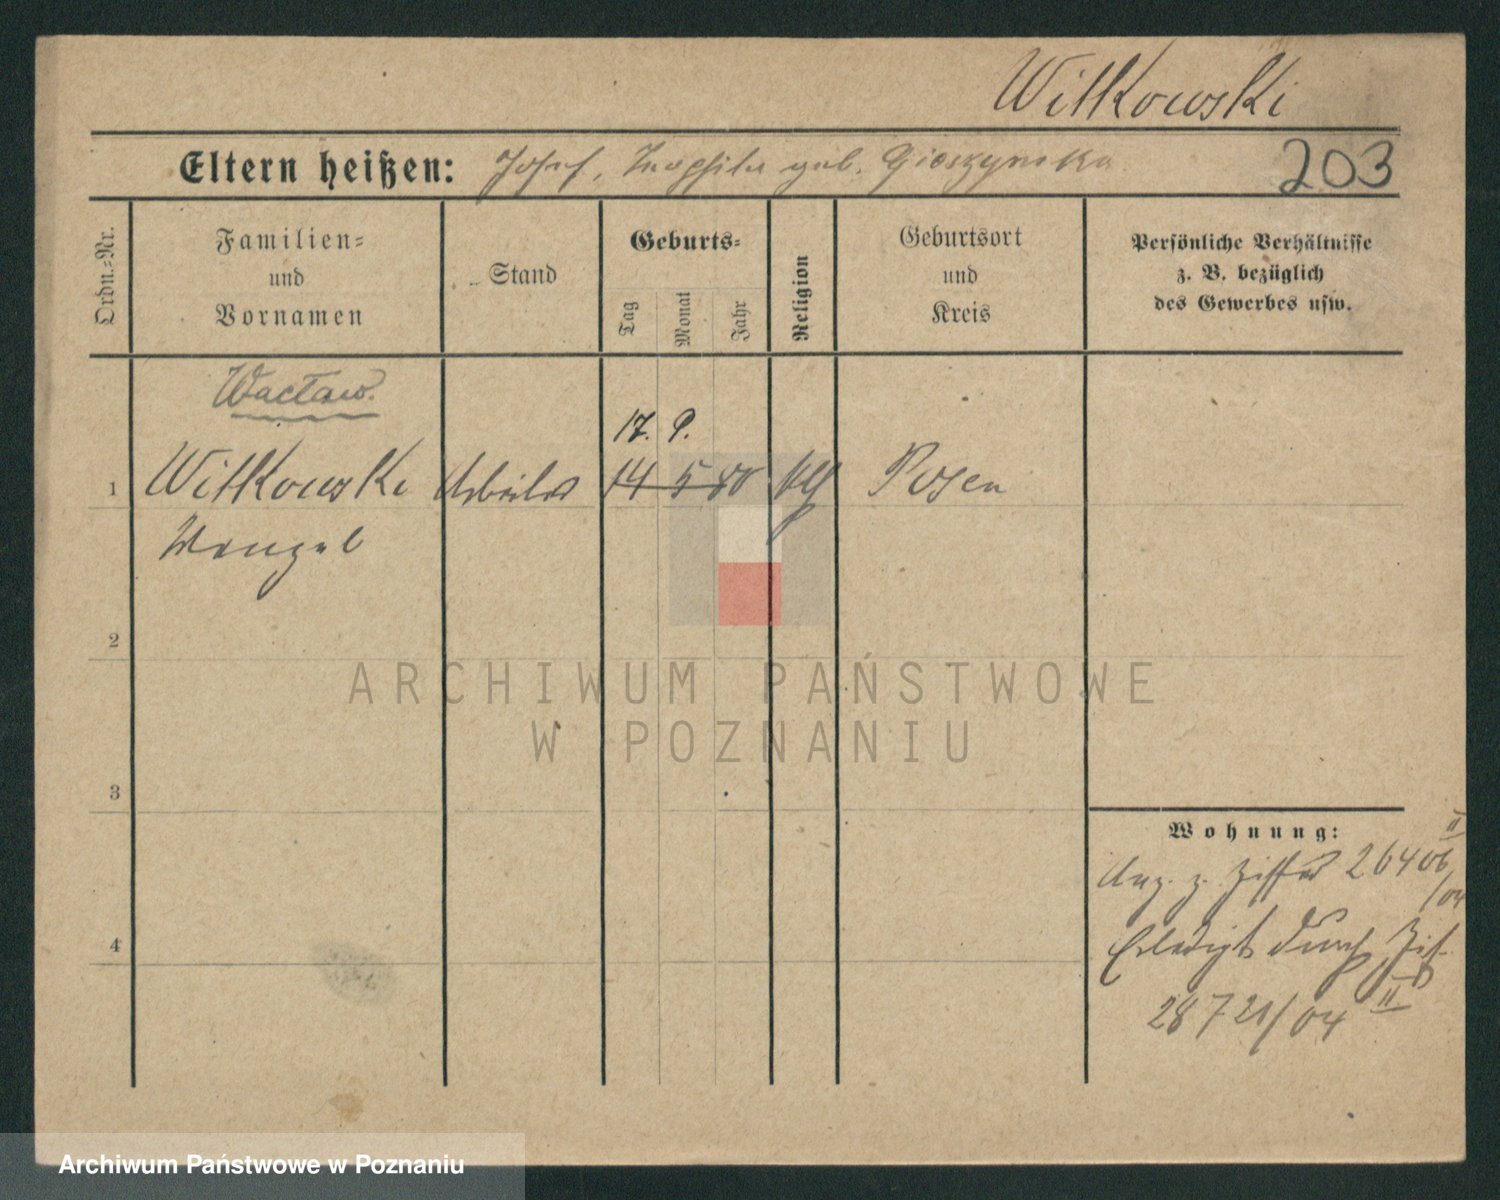 Witkowski
Eltern heißen: Josef, Teophila geb. 203
Ordn.=Nr.
Familien=
und
Vornamen
Stand
Geburts=
Tag
Monat
Jahr
Religion
Geburtsort
und
Kreis
Persönliche Verhältnisse
z. B. bezüglich
des Gewerbes usw.
Wacław.
17. 9.
1 Witkowski Arbeiter 14 5 80 Posen
Wenzel
2
ARCHIWUM PAŃSTWOWE
W POZNANIU
3
Wohnung:
II
Anz. z. Ziffer 26406
/04
4
Erledigt durch Zif.
28721/04 II
Archiwum Państwowe w Poznaniu